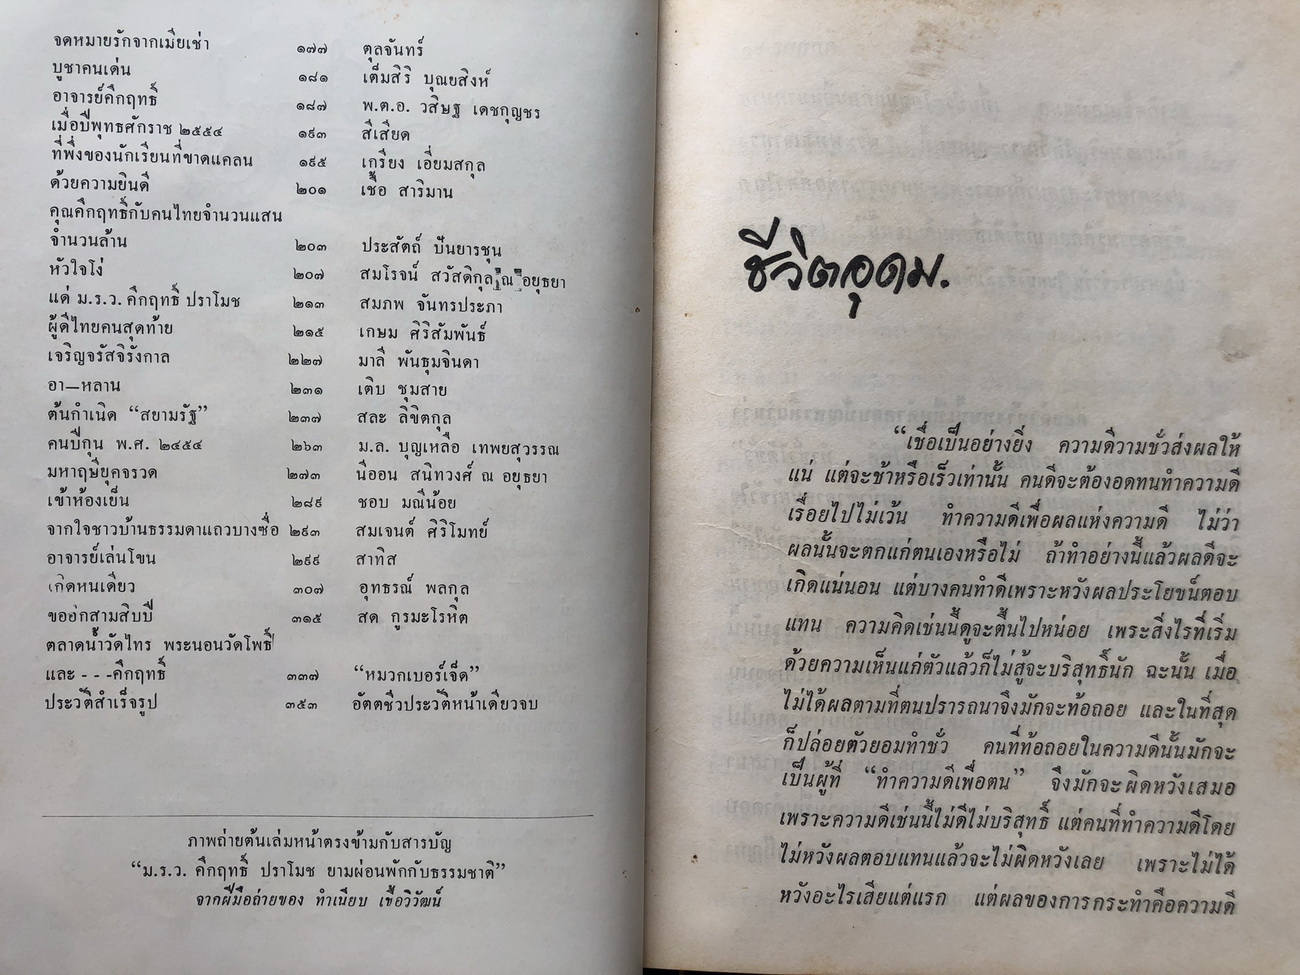 จดหมายรักจากเมียเช่า ๑๗๗ ตุลจันทร์
บูชาคนเด่น ๑๘๑ เต็มสิริ บุณยสิงห์
อาจารย์คึกฤทธิ์ ๑๘๗ พ.ต.อ. วสิษฐ เดชกุญชร
เมื่อปีพุทธศักราช ๒๕๕๔ ๑๙๓ สีเสียด
ที่พึ่งของนักเรียนที่ขาดแคลน ๑๙๕ เกรียง เอี่ยมสกุล
ด้วยความยินดี ๒๐๑ เชื้อ สาริมาน
คุณคึกฤทธิ์กับคนไทยจำนวนแสน
จำนวนล้าน ๒๐๓ ประสัตถ์ ปันยารชุน
หัวใจโง่ ๒๐๗ สมโรจน์ สวัสดิกุล ณ อยุธยา
แด่ ม.ร.ว. คึกฤทธิ์ ปราโมช ๒๑๓ สมภพ จันทรประภา
ผู้ดีไทยคนสุดท้าย ๒๑๕ เกษม ศิริสัมพันธ์
เจริญจรัสจิรังกาล ๒๒๗ มาลี พันธุมจินดา
อา—หลาน ๒๓๑ เติบ ชุมสาย
ต้นกำเนิด “สยามรัฐ” ๒๓๗ สละ ลิขิตกุล
คนปีกุน พ.ศ. ๒๔๕๔ ๒๖๓ ม.ล. บุญเหลือ เทพยสุวรรณ
มหาฤษียุคจรวด ๒๗๓ นีออน สนิทวงศ์ ณ อยุธยา
เข้าห้องเย็น ๒๘๙ ชอบ มณีน้อย
จากใจชาวบ้านธรรมดาแถวบางซื่อ ๒๙๓ สมเจนต์ ศิริโมทย์
อาจารย์เล่นโขน ๒๙๙ สาทิส
เกิดหนเดียว ๓๐๗ อุทธรณ์ พลกุล
ขออีกสามสิบปี ๓๑๕ สด กูรมะโรหิต
ตลาดน้ำวัดไทร พระนอนวัดโพธิ์
และ - - -คึกฤทธิ์ ๓๓๗ “หมวกเบอร์เจ็ด”
ประวัติสำเร็จรูป ๓๕๓ อัตตชีวประวัติหน้าเดียวจบ
ภาพถ่ายต้นเล่มหน้าตรงข้ามกับสารบัญ
“ม.ร.ว. คึกฤทธิ์ ปราโมช ยามผ่อนพักกับธรรมชาติ”
จากฝีมือถ่ายของ ทำเนียบ เชื้อวิวัฒน์
ชีวิตอุดม.
“เชื่อเป็นอย่างยิ่ง ความดีวามชั่วส่งผลให้
แน่ แต่จะช้าหรือเร็วเท่านั้น คนดีจะต้องอดทนทำความดี
เรื่อยไปไม่เว้น ทำความดีเพื่อผลแห่งความดี ไม่ว่า
ผลนั้นจะตกแก่ตนเองหรือไม่ ถ้าทำอย่างนี้แล้วผลดีจะ
เกิดแน่นอน แต่บางคนทำดีเพราะหวังผลประโยขน์ตอบ
แทน ความคิดเข่นนี้ดูจะตื้นไปหน่อย เพระสิ่งไรที่เริ่ม
ด้วยความเห็นแก่ตัวแล้วก็ไม่สู้จะบริสุทธิ์นัก ฉะนั้น เมื่อ
ไม่ได้ผลตามที่ตนปรารถนาจึงมักจะท้อถอย และในที่สุด
ก็ปล่อยตัวยอมทำชั่ว คนที่ท้อถอยในความดีนั้นมักจะ
เป็นผู้ที่ “ทำความดีเพื่อตน” จึงมักจะผิดหวังเสมอ
เพราะความดีเช่นนี้ไม่ดีไม่บริสุทธิ์ แต่คนที่ทำความดีโดย
ไม่หวังผลตอบแทนแล้วจะไม่ผิดหวังเลย เพราะไม่ได้
หวังอะไรเสียแต่แรก แต่ผลของการกระทำคือความดี